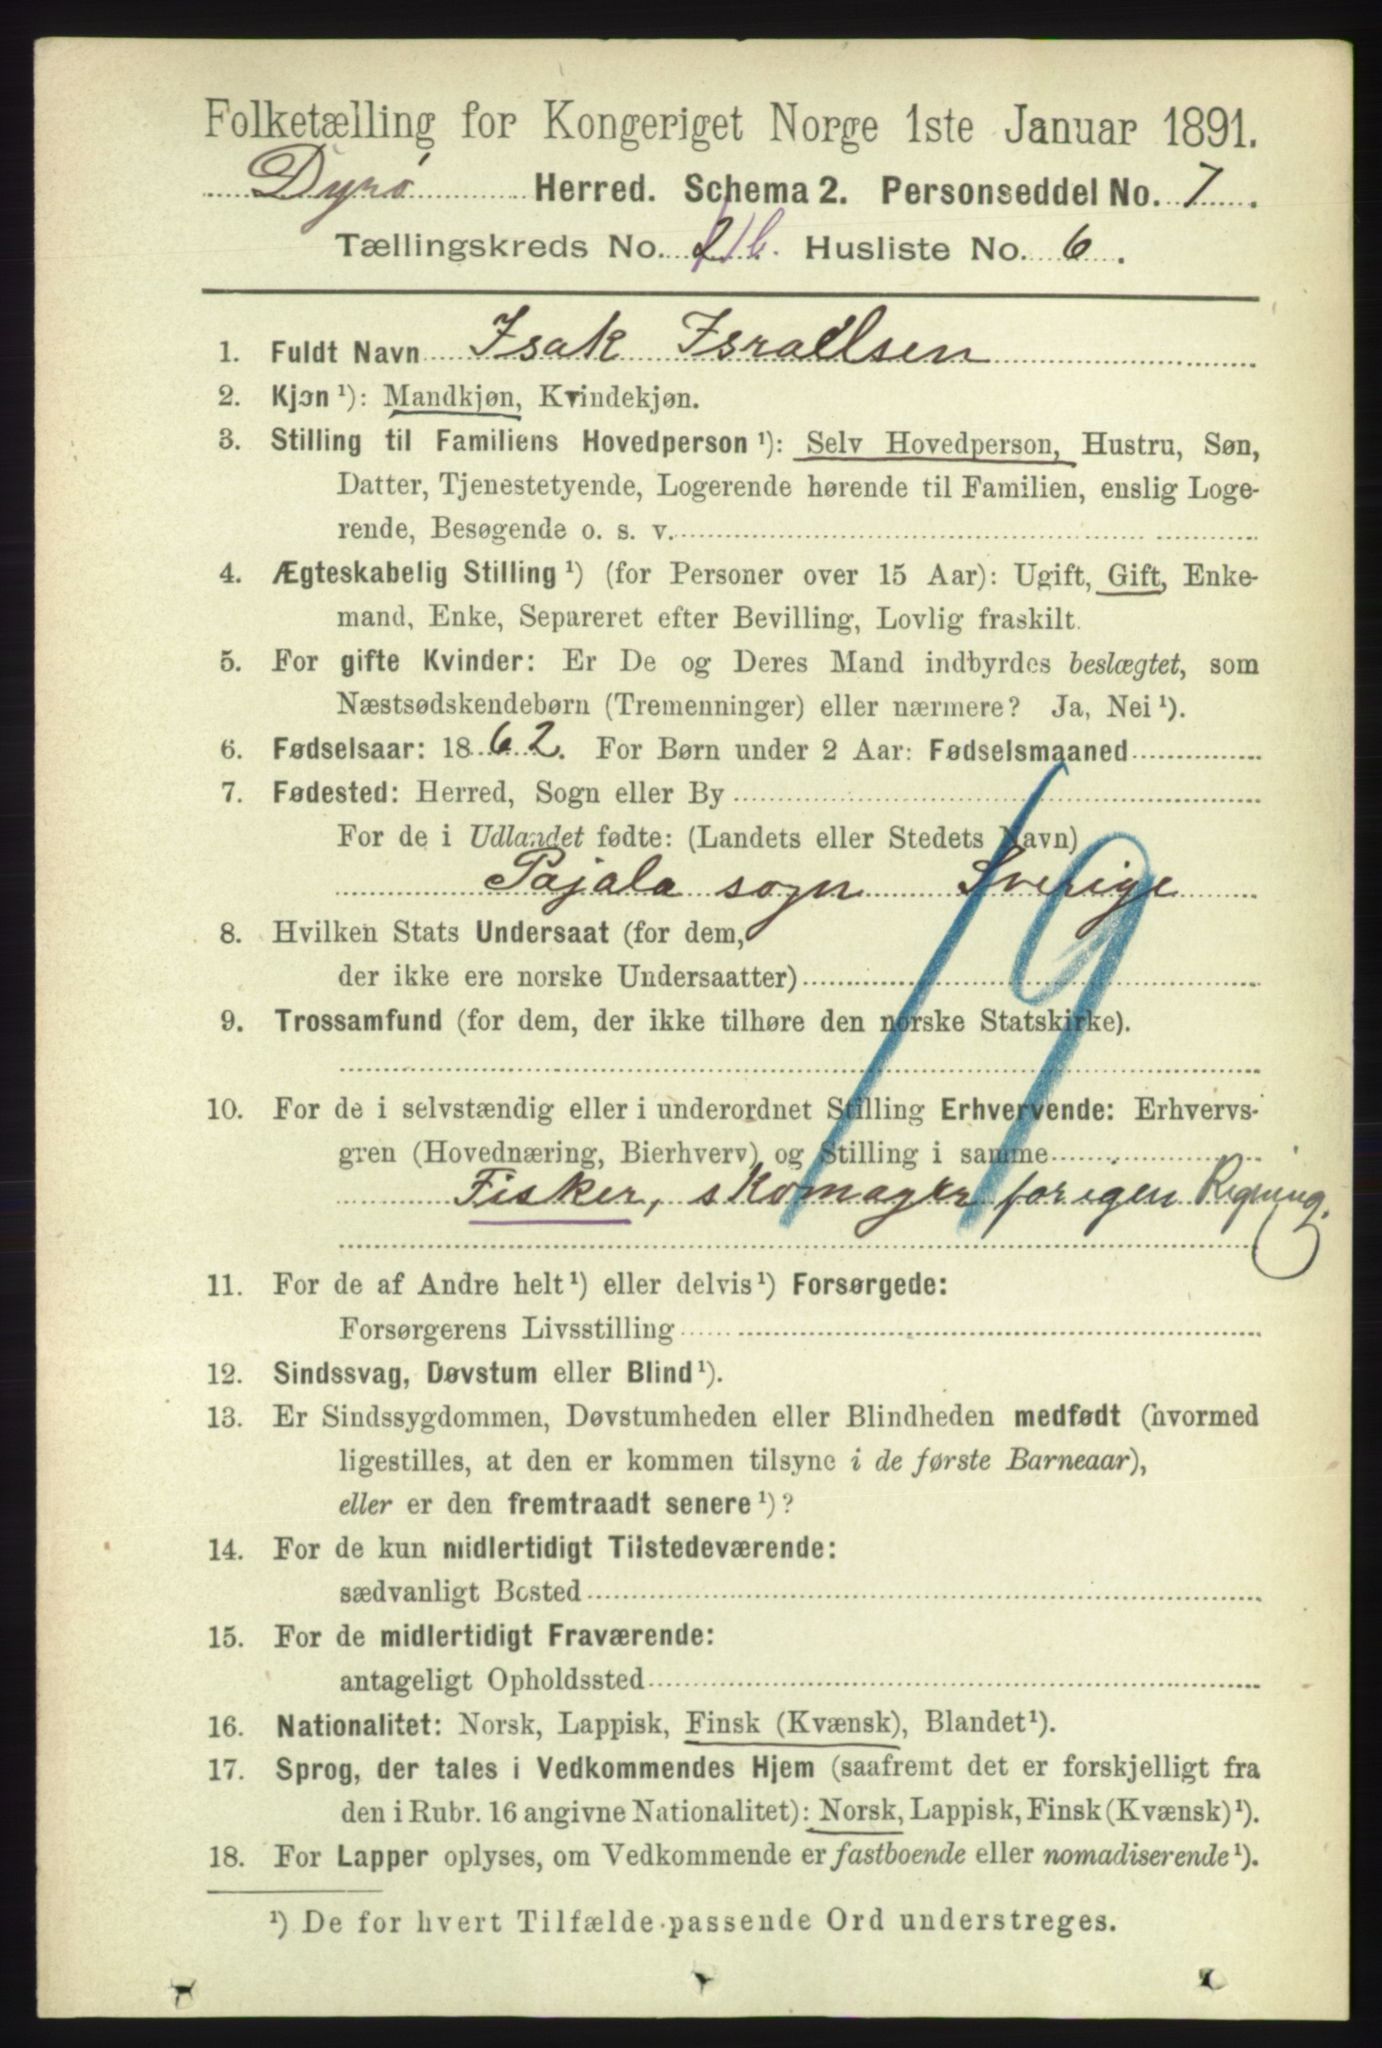 Folketælling for Kongeriget Norge 1ste Januar 1891.
Dyrø Herred. Schema 2. Personseddel No. 7.
Tællingskreds No. 2 Husliste No. 6.
1. Fuldt Navn Isak Israelsen
2. Kjøn ¹): Mandkjøn, Kvindekjøn.
3. Stilling til Familiens Hovedperson ¹): Selv Hovedperson, Hustru, Søn,
Datter, Tjenestetyende, Logerende hørende til Familien, enslig Loge-
rende, Besøgende o. s. v.
4. Ægteskabelig Stilling ¹) (for Personer over 15 Aar): Ugift, Gift, Enke-
mand, Enke, Separeret efter Bevilling, Lovlig fraskilt.
5. For gifte Kvinder: Er De og Deres Mand indbyrdes beslægtet, som
Næstsødskendebørn (Tremenninger) eller nærmere? Ja, Nei ¹).
6. Fødselsaar: 1862. For Børn under 2 Aar: Fødselsmaaned
7. Fødested: Herred, Sogn eller By
For de i Udlandet fødte: (Landets eller Stedets Navn)
Pajala sogn Sverige
8. Hvilken Stats Undersaat (for dem,
der ikke ere norske Undersaatter)
9. Trossamfund (for dem, der ikke tilhøre den norske Statskirke).
19
10. For de i selvstændig eller i underordnet Stilling Erhvervende: Erhvervs-
gren (Hovednæring, Bierhverv) og Stilling i samme
Fisker, skomager for egen Regning.
11. For de af Andre helt ¹) eller delvis ¹) Forsørgede:
Forsørgerens Livsstilling
12. Sindssvag, Døvstum eller Blind ¹).
13. Er Sindssygdommen, Døvstumheden eller Blindheden medfødt (hvormed
ligestilles, at den er kommen tilsyne i de første Barneaar),
eller er den fremtraadt senere ¹)?
14. For de kun midlertidigt Tilstedeværende:
sædvanligt Bosted
15. For de midlertidigt Fraværende:
antageligt Opholdssted
16. Nationalitet: Norsk, Lappisk, Finsk (Kvænsk), Blandet ¹).
17. Sprog, der tales i Vedkommendes Hjem (saafremt det er forskjelligt fra
den i Rubr. 16 angivne Nationalitet): Norsk, Lappisk, Finsk (Kvænsk) ¹).
18. For Lapper oplyses, om Vedkommende er fastboende eller nomadiserende ¹).
¹) De for hvert Tilfælde passende Ord understreges.